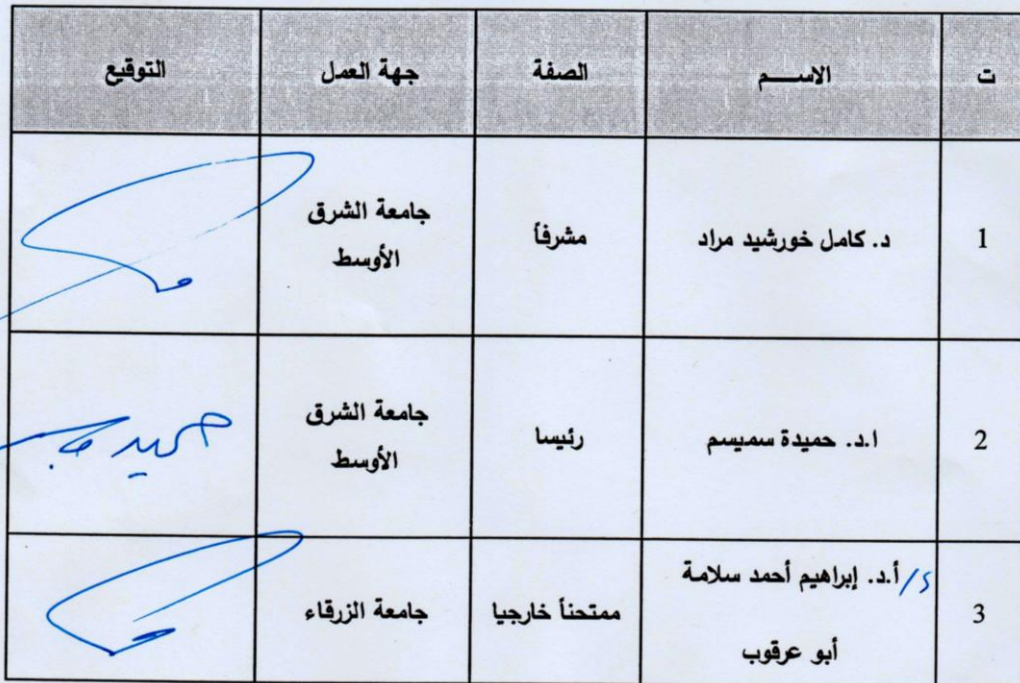 ت الاســـم الصفة جهة العمل التوقيع
1 د. كامل خورشيد مراد مشرفاً جامعة الشرق
الأوسط
2 ا.د. حميدة سميسم رئيسا جامعة الشرق
الأوسط
حميدة
3 أ.د. إبراهيم أحمد سلامة ممتحناً خارجيا جامعة الزرقاء
أبو عرقوب